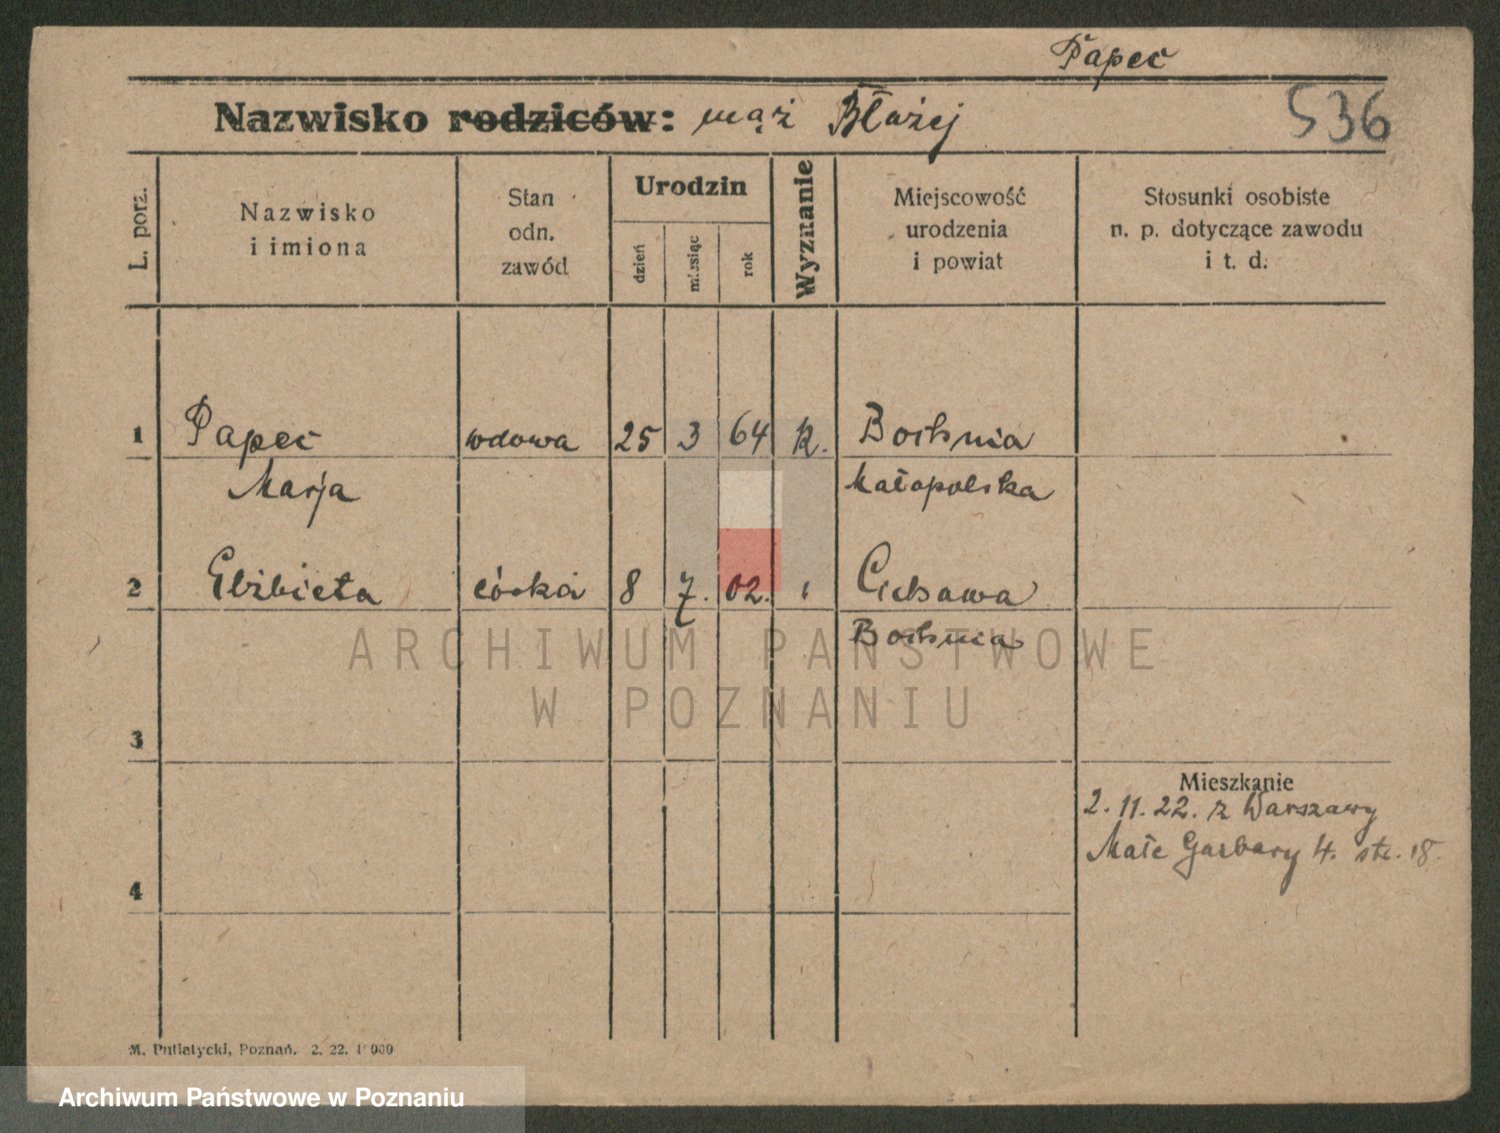 Papec
Nazwisko rodziców: mąż Błażej 536
L. porz.
Nazwisko
i imiona
Stan
odn.
zawód
Urodzin
dzień
miesiąc
rok
Wyznanie
Miejscowość
urodzenia
i powiat
Stosunki osobiste
n. p. dotyczące zawodu
i t. d.
1 Papec wdowa 25 3 64 k. Bochnia
Marja Małopolska
2 Elżbieta córka 8 7. 02. Cichawa
Bochnia
ARCHIWUM PAŃSTWOWE
W POZNANIU
3
Mieszkanie
2. 11. 22. z Warszawy
Małe Garbary 4. str. 18.
4
M. Putiatycki, Poznań. 2. 22.
Archiwum Państwowe w Poznaniu